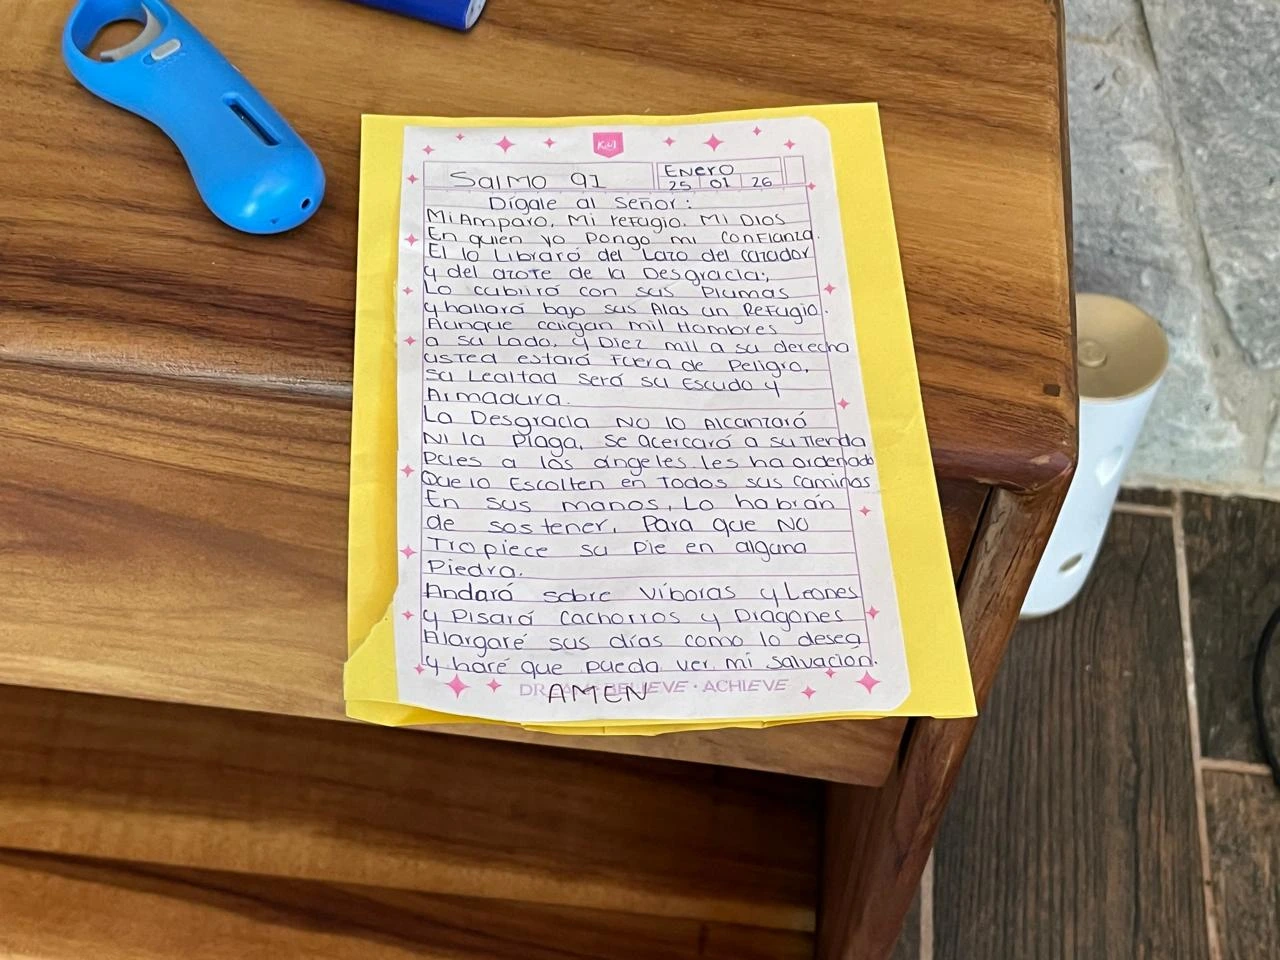 Kiut
Salmo 91
Enero
25 01 26
Dígale al Señor:
Mi Amparo, Mi refugio. Mi Dios
En quien yo pongo mi confianza.
El lo Librará del Lazo del cazador
y del azote de la Desgracia;
Lo cubrirá con sus Plumas
y hallará bajo sus Alas un Refugio.
Aunque caigan mil Hombres
a su Lado, y Diez mil a su derecha
usted estará fuera de Peligro,
su Lealtad será su Escudo y
Armadura.
La Desgracia NO lo Alcanzará
Ni la Plaga, se acercará a su Tienda
Pues a los ángeles les ha ordenado
Que lo Escolten en Todos sus caminos
En sus manos, Lo habrán
de sostener, Para que NO
Tropiece su Pie en alguna
Piedra.
Andará sobre víboras y Leones
y Pisará Cachorros y Dragones
Alargaré sus días como lo desea
y haré que pueda ver mi salvación.
AMEN
BELIEVE · ACHIEVE